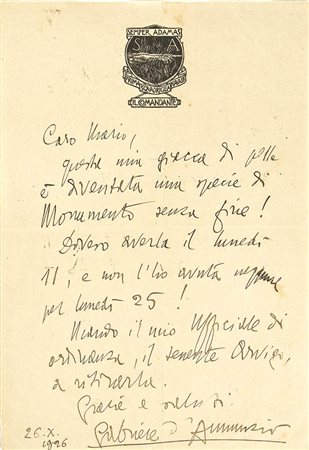 SEMPER ADAMAS
S A
IL COMANDANTE
Caro Mario,
questa mia giacca di pelle
è diventata una specie di
Monumento senza fine!
Dovevo averla il lunedì
11, e non l'ho avuta neppure
pel lunedì 25!
Mando il mio Ufficiale di
ordinanza, il tenente Arrigo,
a ritirarla.
Grazie e saluti.
Gabriele d'Annunzio
26.X.
1926